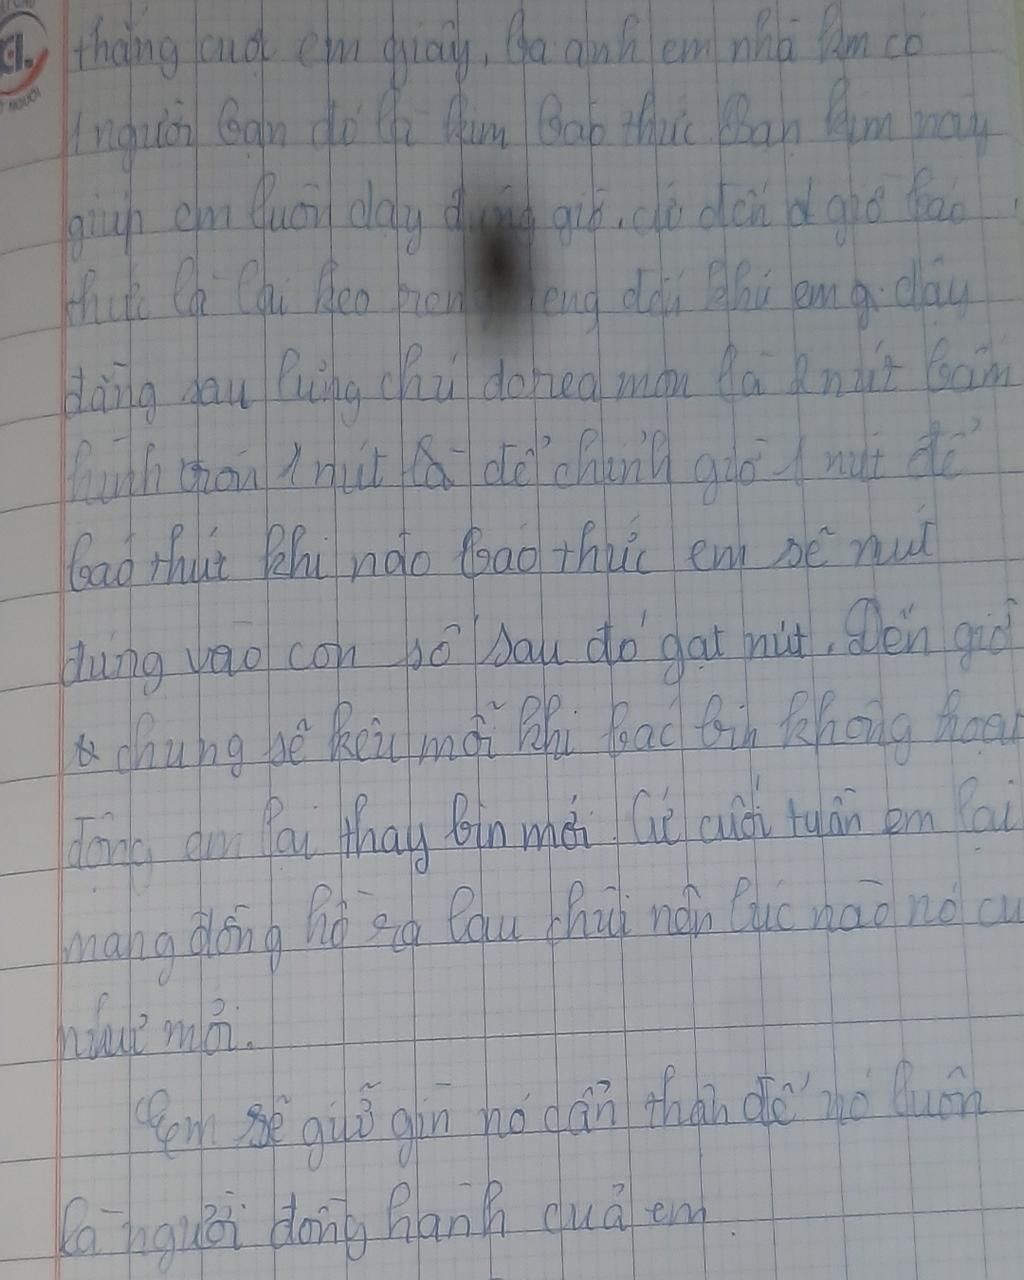 thắng cuợt em giây, Ba anh em nhà kim có
1 người bạn đó là kim báo thức. Bạn kim này
giúp em luôn dậy đúng giờ. cứ đến d giờ báo
thức là cái keo reng reng đối khi em g. dây
đằng sau lưng chú doreamon là 2 nút bấm
hình tròn 1 nút là để chỉnh giờ 1 nút để
báo thức khi nào báo thức em sẽ nút
đúng vào con số sau đó gạt nút. Đến giờ
chung sẽ kêu mỗi khi bác bin không hoạt
động em lại thay bin mới. Cứ cuối tuần em lại
mang đồng hồ ra lau chùi nên lúc nào nó cu
như mới.
Em sẽ giữ gìn nó cẩn thận để nó luôn
là người đồng hành cuả em.